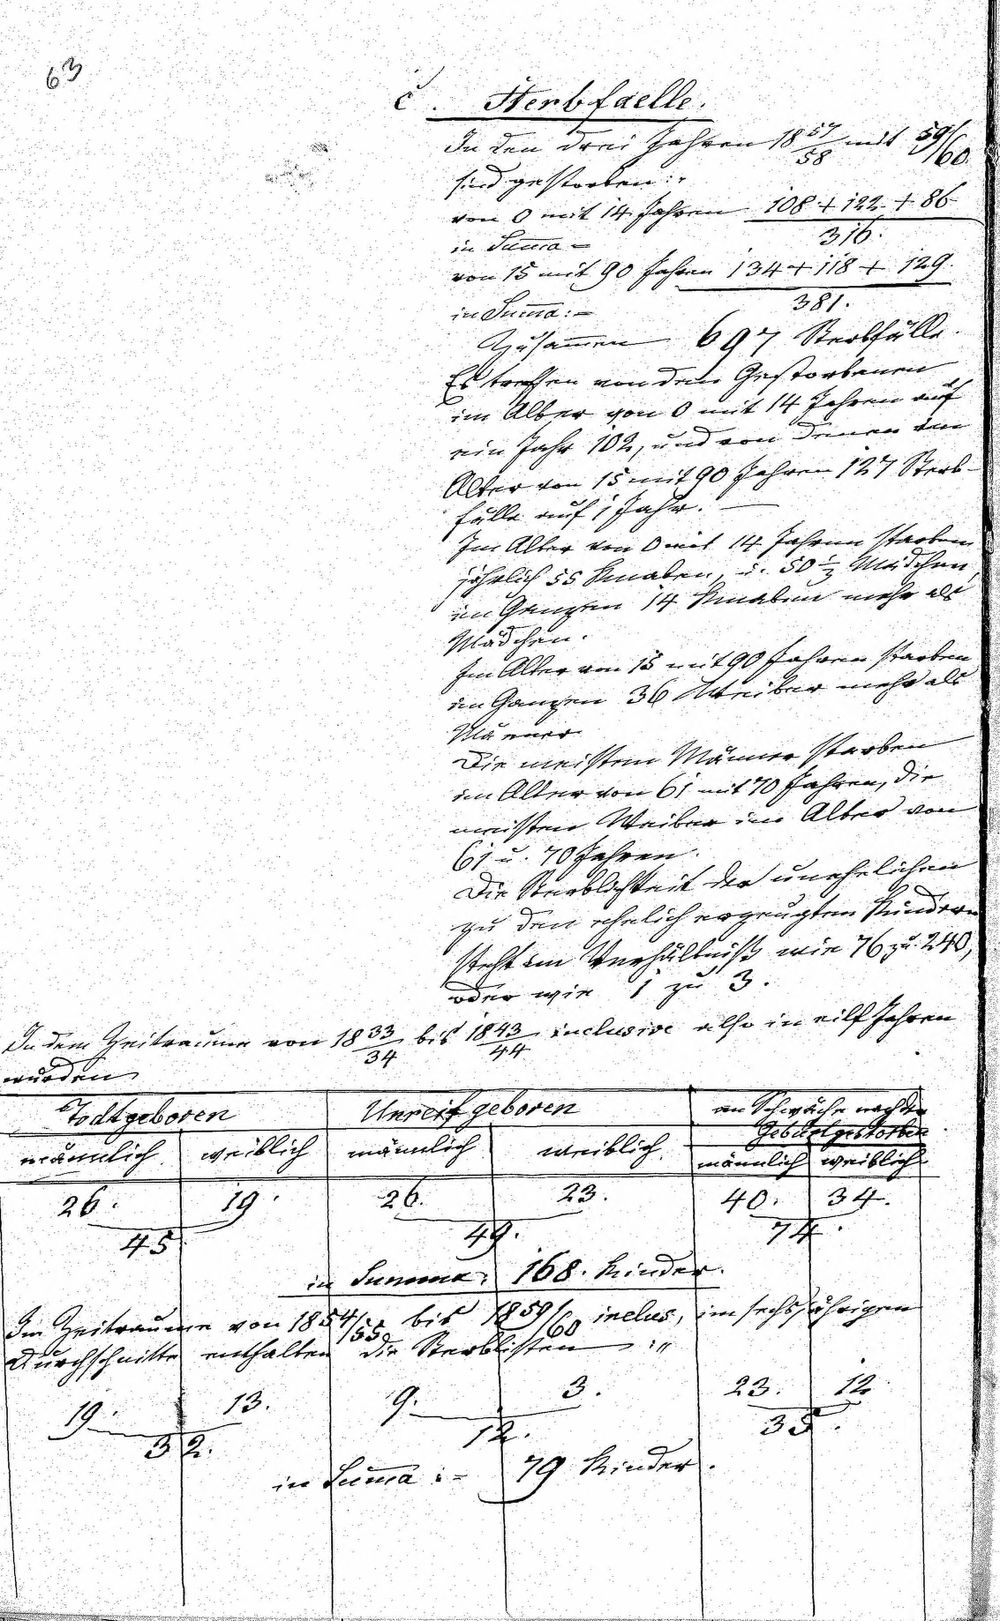 63
c. Sterbfaelle.
In den drei Jahren 18 57/58 mit 59/60
sind gestorben :
von 0 mit 14 Jahren 108 + 122 + 86
in Suma = 316.
von 15 mit 90 Jahren 134 + 118 + 129.
in Suma := 381.
Zusammen 697 Sterbfälle.
Es treffen von den Gestorbenen
im Alter von 0 mit 14 Jahren auf
ein Jahr 102, und von denen im
Alter von 15 mit 90 Jahren 127 Sterb-
fälle auf 1 Jahr. —
Im Alter von 0 mit 14 Jahren starben
jährlich 55 Knaben, u. 50 1/2 Mädchen,
im Ganzen 14 Knaben mehr als
Mädchen.
Im Alter von 15 mit 90 Jahren starben
im Ganzen 36 Weiber mehr als
Mäner
Die meisten Männer starben
im Alter von 61 mit 70 Jahren, die
meisten Weiber im Alter von
61 u. 70 Jahren.
Die Sterblichkeit der unehelichen
zu den ehelich erzeugten Kindern
steht im Verhältniß wie 76 zu 240,
oder wie 1 zu 3.
In dem Zeitraume von 18 33/34 bis 18 43/44 inclusive also in eilf Jahren
wurden
Todtgeboren Unreif geboren an Schwäche nach der
Geburt gestorben
männlich weiblich männlich weiblich männlich weiblich
26. 19. 26. 23. 40. 34.
45 49. 74.
in Summa: 168. Kinder.
Im Zeitraume von 18 54/55 bis 18 59/60 inclus, im sechsjährigen
Durchschnitte enthalten die Sterblisten :"
19. 13. 9. 3. 23. 12
32. 12. 35.
in Suma := 79 Kinder.